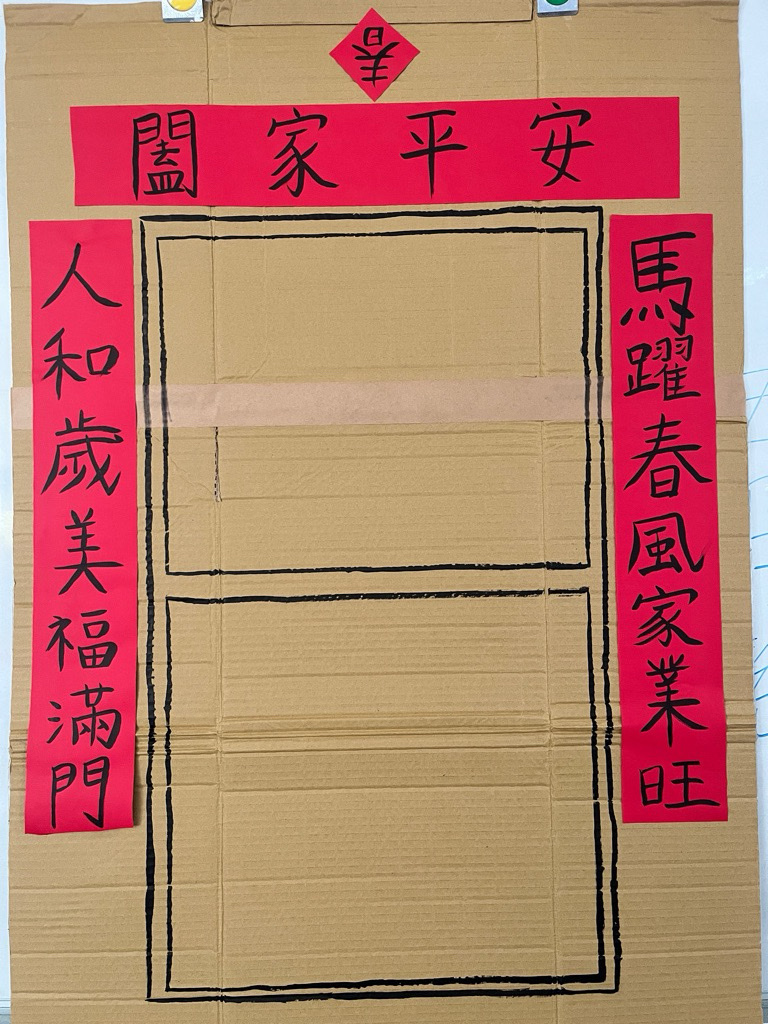 春
闔家平安
馬躍春風家業旺
人和歲美福滿門